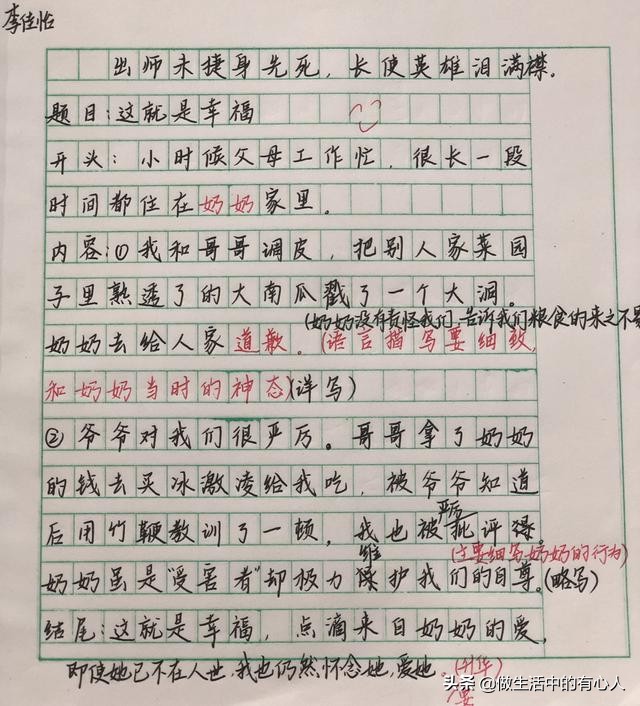 李佳怡
出师未捷身先死，长使英雄泪满襟。
题目：这就是幸福
开头：小时候父母工作忙，很长一段
时间都住在奶奶家里。
内容：①我和哥哥调皮，把别人家菜园
子里熟透了的大南瓜戳了一个大洞。
(奶奶没有责怪我们，告诉我们粮食的来之不
奶奶去给人家道歉。(语言描写要细致,
和奶奶当时的神态)(详写)
②爷爷对我们很严厉。哥哥拿了奶奶
的钱去买冰激凌给我吃，被爷爷知道
严厉
后用竹鞭教训了一顿，我也被批评得。
维
(主要细写奶奶的行为)
奶奶虽是"受害者"却极力护我们的自尊。(略写)
结尾：这就是幸福，点滴来自奶奶的爱，
即使她已不在人世，我也仍然怀念她，爱她。(升华)
要
头条 @做生活中的有心人